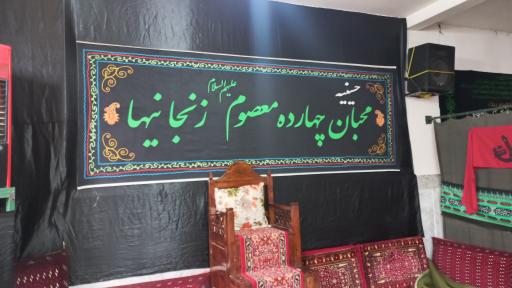 حسینیه
محبان چهارده معصوم علیهم السلام زنجانیها